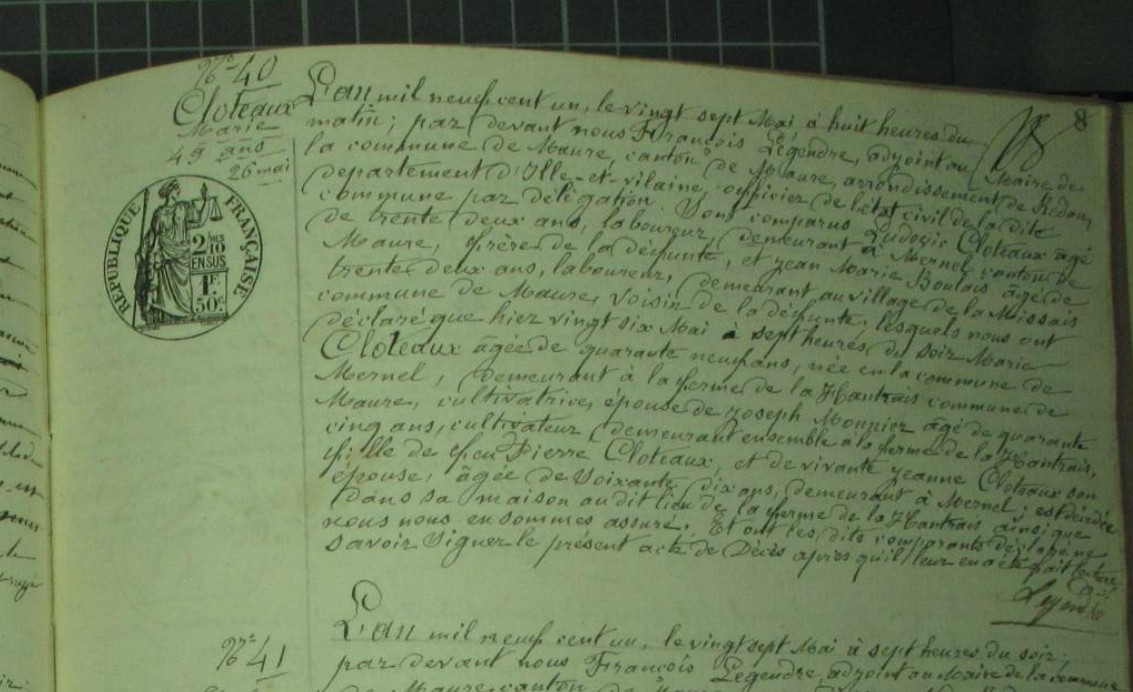 N° 40
Cloteaux
Marie
49 ans
26 mai
RÉPUBLIQUE FRANÇAISE
2/10
EN SUS
1F
50c
8
L'an mil neuf cent un, le vingt sept Mai à huit heures du
matin; par devant nous François Legendre, adjoint au Maire de
la commune de Maure, canton de Maure, arrondissement de Redon,
departement d'Ille-et-vilaine, officier de l'état civil de la dite
commune par délégation. Sont comparus Ludovic Cloteaux âgé
de trente deux ans, laboureur, demeurant à Mernel, canton de
Maure, frère de la défunte, et Jean Marie Boulais âgé de
trente deux ans, laboureur, demeurant au village de la Missais
commune de Maure, voisin de la défunte, lesquels nous ont
déclaré que hier vingt six Mai à sept heures du soir Marie
Cloteaux âgée de quarante neuf ans, née en la commune de
Mernel, demeurant à la ferme de la Hantrais commune de
Maure, cultivatrice, épouse de Joseph Monnier âgé de quarante
cinq ans, cultivateur, demeurant ensemble à la ferme de la Hantrais,
fille de feu Pierre Cloteaux, et de vivante Jeanne Cloteaux son
épouse, âgée de Soixante dix ans, demeurant à Mernel; est décédée
dans sa maison au dit lieu de la ferme de la Hantrais ainsi que
nous nous en sommes assuré. Et ont les dits comparants déclaré ne
savoir Signer le présent acte de Décès après qu'il leur en a été fait lecture
Legendre
N° 41
L'an mil neuf cent un, le vingt sept Mai à sept heures du soir;
par devant nous François Legendre, adjoint au Maire de la commune
de Maure, canton de